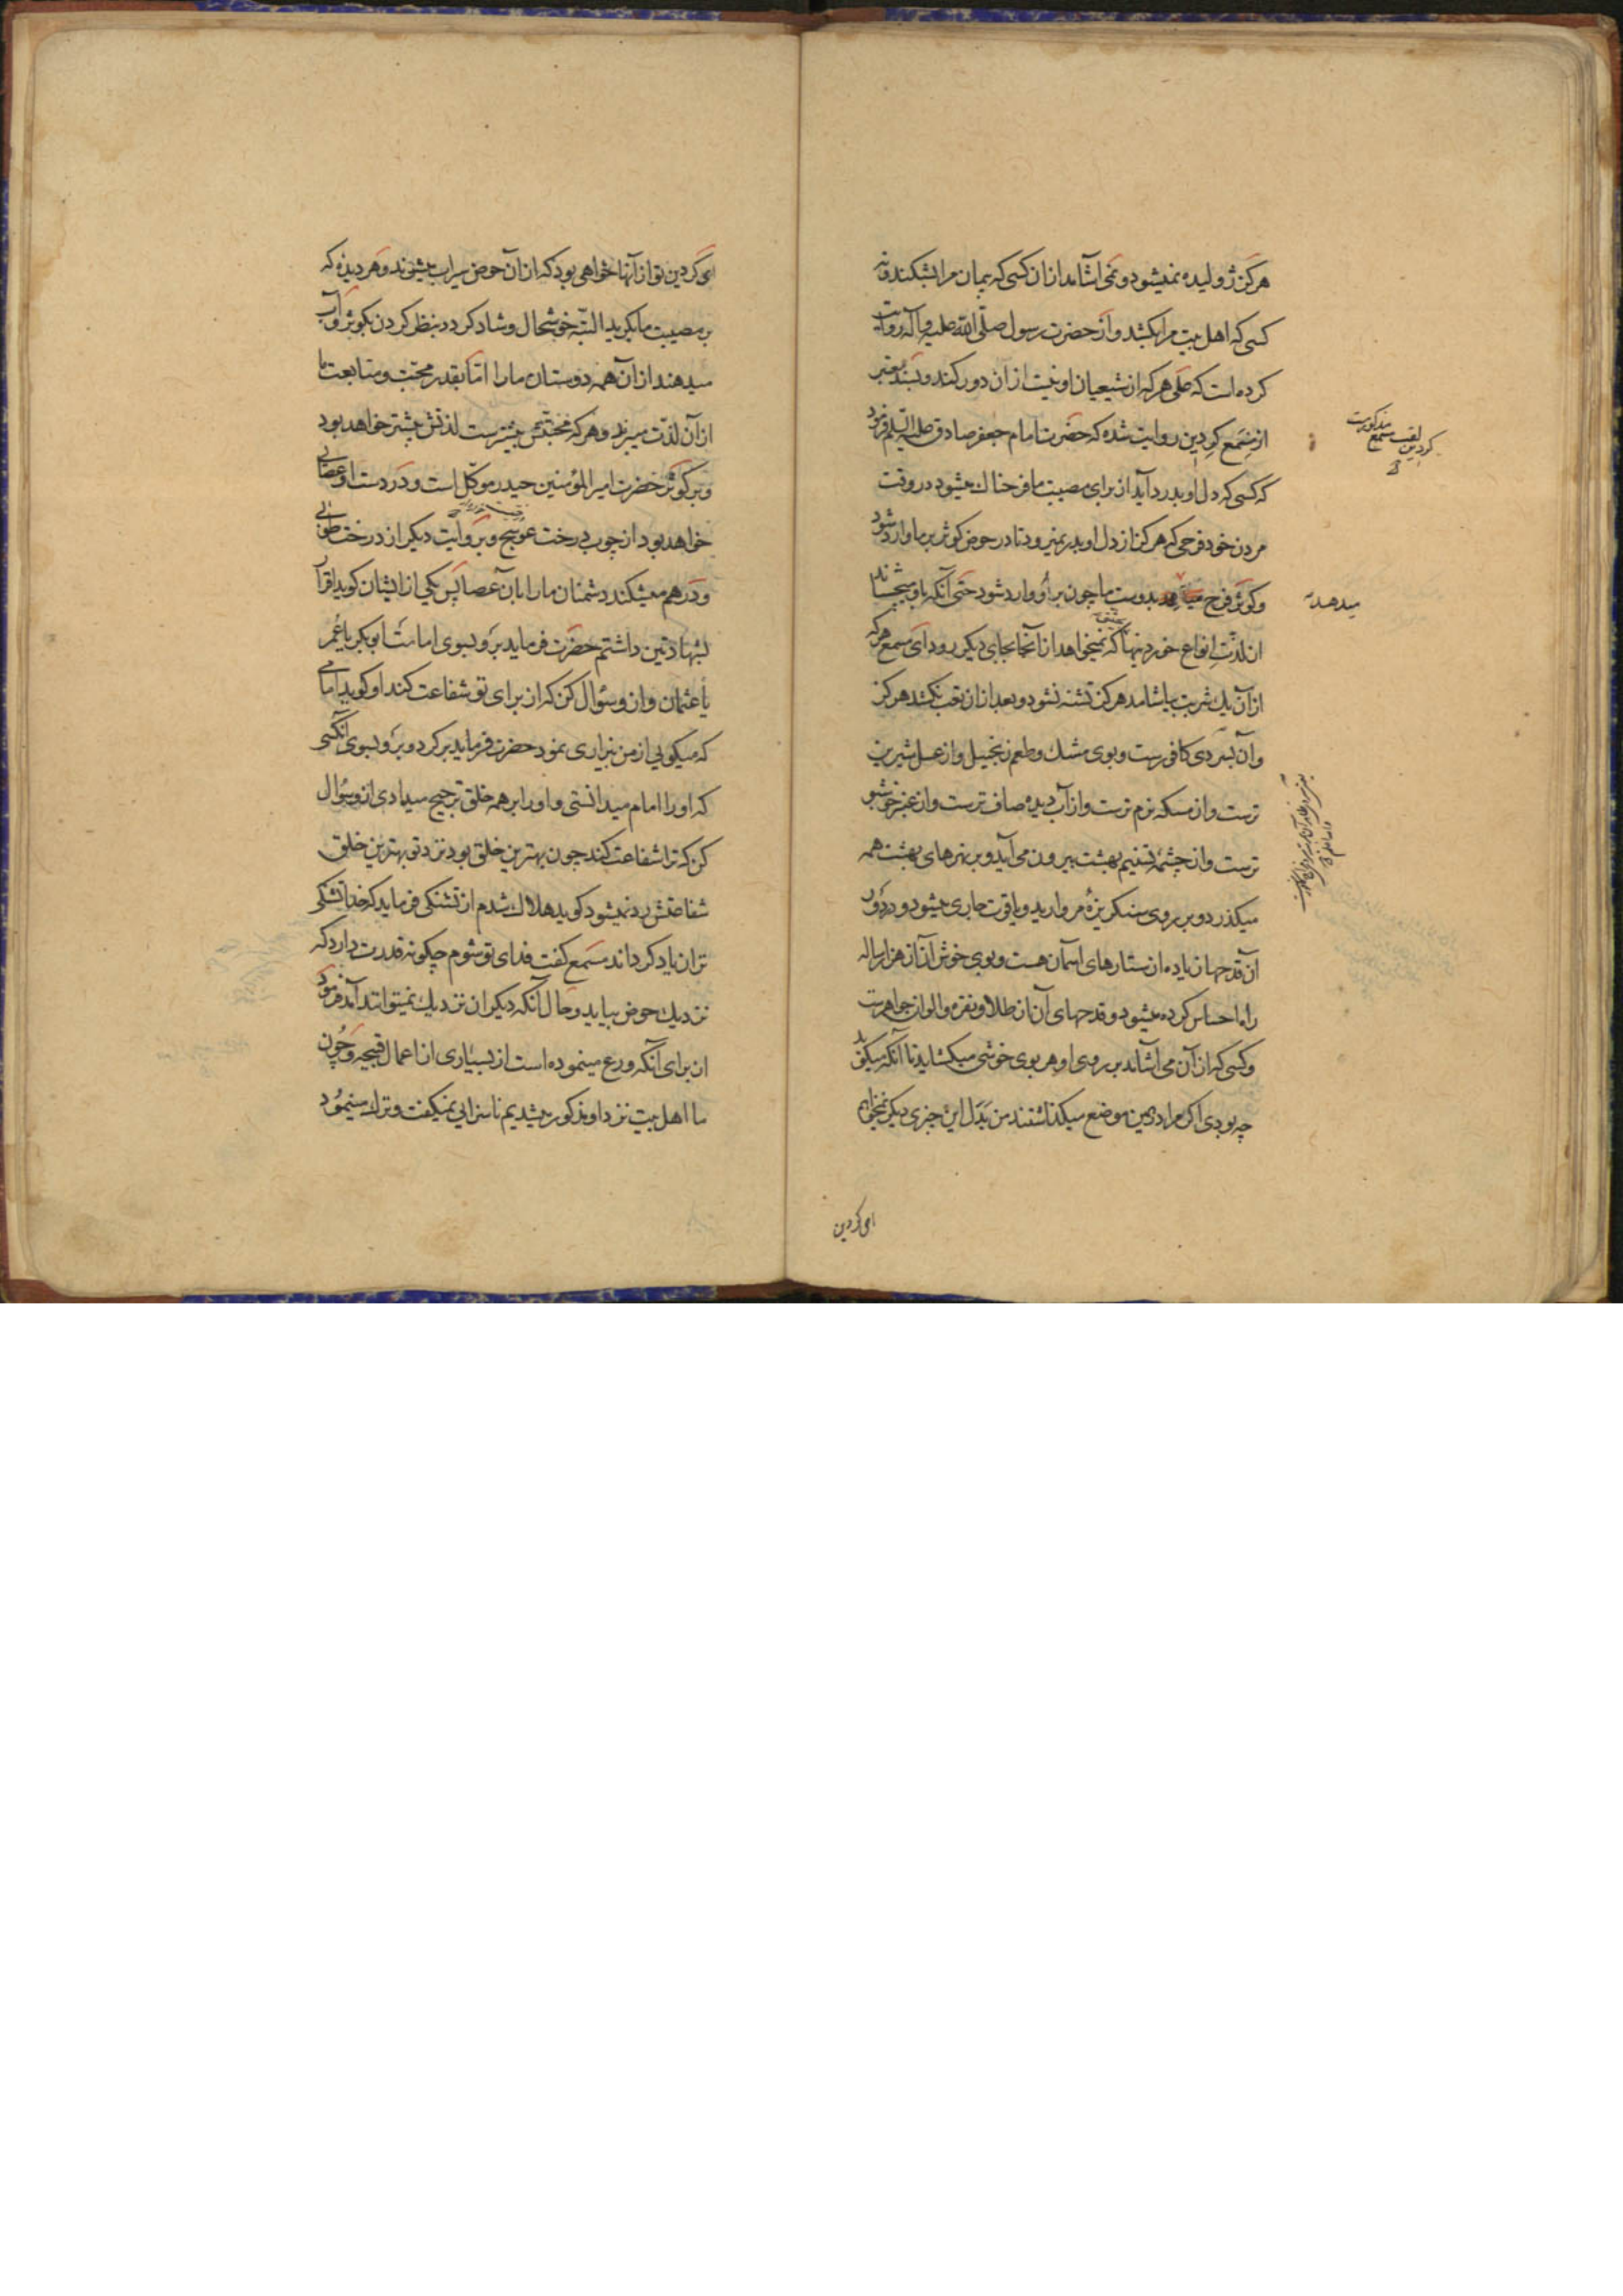 هرکز ژولیده نمیشود و نمی آشامد ازان کسی که پیمان مرا بشکند و نه
کسی که اهل بیت مرا بکشد و از حضرت رسول صلّی الله علیه و آله روایت
کرده است که علی هر که از شیعیان او نیست ازان دور کند و بسند معتبر
از مسمع کردین روایت شده که حضرت امام جعفر صادق علیه السلم فرمود
که کسی که دل او بدرد آید از برای مصیبت ما فرحناک میشود در وقت
مردن خود فرحی که هرکز از دل او بدر نمیرود تا در حوض کوثر بر ما وارد شود
و کوثر فرح بدوست ما چون بر او وارد شود حتی آنکه باو میچشاند
از لذّت انواع خوردنیها که نمیخواهد از آنجا بجای دیکر رود ای مسمع هر که
ازان یک شربت بیاشامد هرکز تشنه نشود و بعد ازان تعب نکشد هرکز
و آن بسردی کافورست و بوی مشک و طعم زنجبیل و از عسل شیرین
ترست و از مسکه نرم ترست و از آب دیده صاف ترست و از عنبر خوشبو
ترست و از چشمه تسنیم بهشت بیرون می آید و بر نهرهای بهشت همه
میکذرد و بر روی سنکریزهٔ مروارید و یاقوت جاری میشود و در دور
آن قدحها زیاده از ستارهای آسمان هست و بوی خوش آن از هزار ساله
راه احساس کرده میشود و قدحهای آن از طلا و نقره و الوان جواهرست
و کسی که ازان می آشامد بر روی او هر بوی خوشی میکشاید تا آنکه میکوید
چه بودی اکر مرا در همین موضع میکذاشتند من بَدَل این چیزی دیکر نمیخواهم
کردین لقب مسمع مذکورست
میدهد
ای کردین
ای کردین تو از آنها خواهی بود که ازان حوض سیراب میشوند و هر دیده که
بر مصیبت ما بکرید البتّه خوشحال و شاد کردد بنظر کردن بکوثر و آب
میدهند ازان همه دوستان ما را امّا بقدر محبّت و متابعت ما
ازان لذّت میبرند و هر که محبتش بیشترست لذتش بیشتر خواهد بود
و بر کوثر حضرت امیر المؤمنین حیدر موکّل است و در دست او عصائی
خواهد بود از چوب درخت عوسج و بروایت دیکر از درخت طوبی
و درهم میشکند دشمنان ما را بان عصا پس یکی از ایشان کوید اقرار
بشهادتین داشتم حضرت فرماید برو بسوی امامت ابوبکر یا عُمر
یا عثمان و ازو سؤال کن که از برای تو شفاعت کند او کوید امامی
که میکویی از من بیزاری نمود حضرت فرماید برکرد و برو بسوی آنکسی
که او را امام میدانستی و او را بر همه خلق ترجیح میدادی ازو سؤال
کن که ترا شفاعت کند چون بهترین خلق بود نزد تو بهترین خلق
شفاعتش رد نمیشود کوید هلاک شدم از تشنکی فرماید که خدا تشنکی
ترا زیاد کرداند مسمع کفت فدای تو شوم چکونه قدرت دارد که
نزدیک حوض بیاید و حال آنکه دیکران نزدیک نمیتوانند آمد فرمود
از برای آنکه ورع مینموده است از بسیاری از اعمال قبیحه و چون
ما اهل بیت نزد او مذکور میشدیم ناسزایی نمیکفت و ترک مینمود